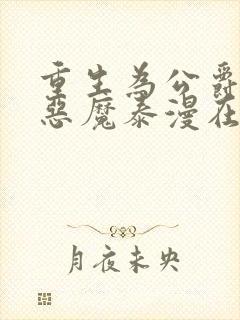 重生为公爵
恶魔泰漫在
月夜未央